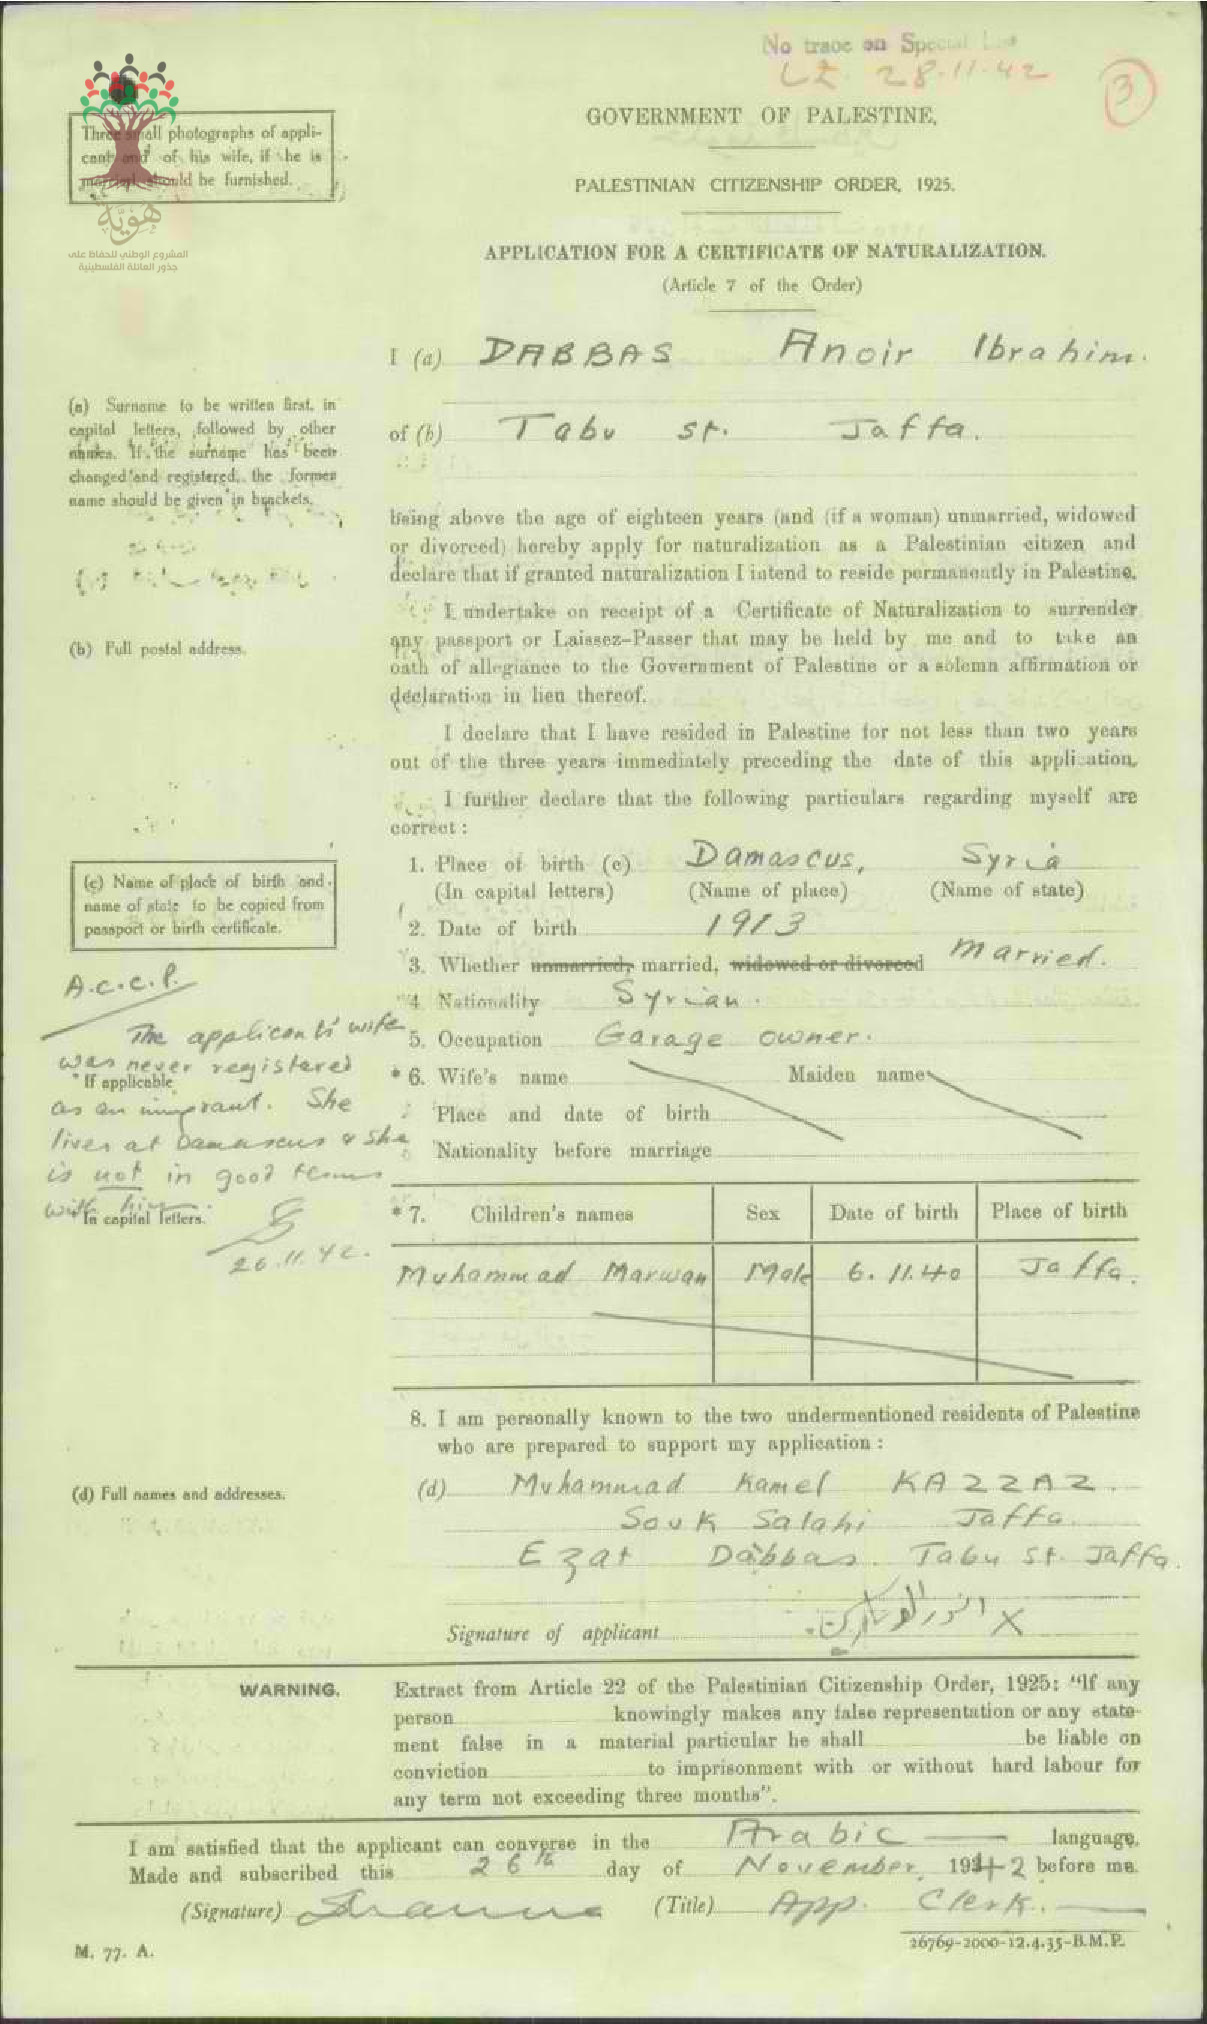 No trace on Special List
28.11.42
3
GOVERNMENT OF PALESTINE.
Three small photographs of appli-
cant and of his wife, if he is
married, should be furnished.
PALESTINIAN CITIZENSHIP ORDER, 1925.
هوية
المشروع الوطني للحفاظ على
جذور العائلة الفلسطينية
APPLICATION FOR A CERTIFICATE OF NATURALIZATION.
(Article 7 of the Order)
I (a) DABBAS Anoir Ibrahim.
(a) Surname to be written first, in
capital letters, followed by other
names. If the surname has been
changed and registered, the former
name should be given in brackets.
of (b) Tabu st. Jaffa.
being above the age of eighteen years (and (if a woman) unmarried, widowed
or divorced) hereby apply for naturalization as a Palestinian citizen and
declare that if granted naturalization I intend to reside permanently in Palestine.
I undertake on receipt of a Certificate of Naturalization to surrender
any passport or Laissez-Passer that may be held by me and to take an
oath of allegiance to the Government of Palestine or a solemn affirmation or
declaration in lieu thereof.
(b) Full postal address.
I declare that I have resided in Palestine for not less than two years
out of the three years immediately preceding the date of this application.
I further declare that the following particulars regarding myself are
correct:
1. Place of birth (c) Damascus, Syria
(In capital letters) (Name of place) (Name of state)
(c) Name of place of birth and
name of state to be copied from
passport or birth certificate.
2. Date of birth 1913
3. Whether unmarried, married, widowed or divorced married.
4. Nationality Syrian.
5. Occupation Garage owner.
* 6. Wife's name Maiden name
Place and date of birth
Nationality before marriage
A.c.c.P.
The applicants' wife
was never registered
* If applicable
as an immigrant. She
lives at Damascus & she
is not in good terms
with him
In capital letters.
26.11.42.
* 7. Children's names Sex Date of birth Place of birth
Muhammad Marwan Male 6.11.40 Jaffa.
8. I am personally known to the two undermentioned residents of Palestine
who are prepared to support my application:
(d) Full names and addresses.
(d) Muhammad Kamel KAZZAZ.
Souk Salahi Jaffa.
Ezat Dabbas. Tabu st. Jaffa.
Signature of applicant انور X
WARNING.
Extract from Article 22 of the Palestinian Citizenship Order, 1925: "If any
person knowingly makes any false representation or any state-
ment false in a material particular he shall be liable on
conviction to imprisonment with or without hard labour for
any term not exceeding three months".
I am satisfied that the applicant can converse in the Arabic language.
Made and subscribed this 26th day of November, 1942 before me.
(Signature) (Title) App. Clerk.
M. 77. A.
26769-2000-12.4.35-B.M.P.